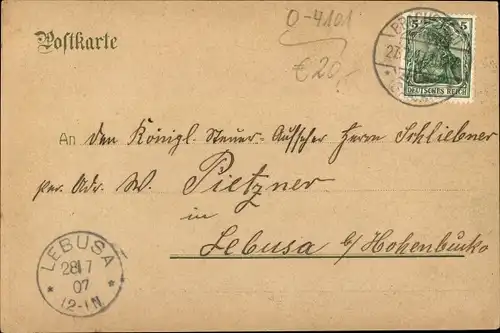 Postkarte
O-4101
€20,-
5 5
27.
DEUTSCHES REICH
An den Königl. Steuer-Aufseher Herrn Schliebner
per. Adr. W. Pietzner
in
Lebusa b/Hohenbucko
LEBUSA
28 7
07
* 12-1N. *